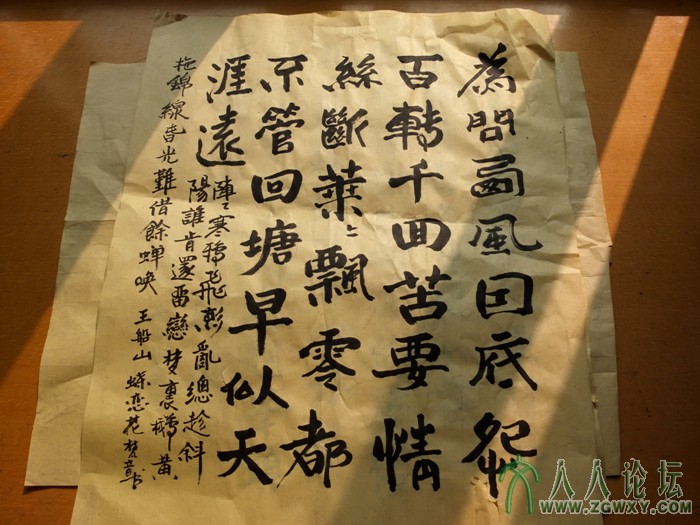 為問西風因底怨
百轉千回苦要情
絲斷葉〻飄零都
不管回塘早似天
涯遠
陣〻寒鴉飛影亂總趁斜
陽誰肯還留戀梦裏鵝黃
拖錦線春光難借餘蟬喚 王船山 蝶恋花
人人论坛
www.zgwxy.com